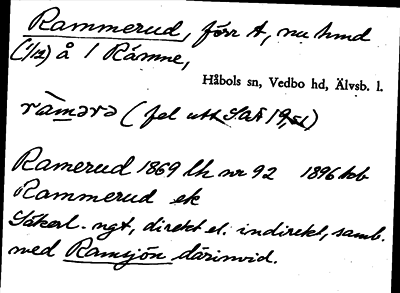 Rammerud, förr t, nu hmd
(1/12) å 1 Rämne,
Håbols sn, Vedbo hd, Älvsb. l.
ràmərə (fel utt
Ramerud 1869 lh nr 92 1896 kb
Rammerud ek
Säkerl. ngt, direkt el. indirekt, samb.
med Ramsjön därinvid.